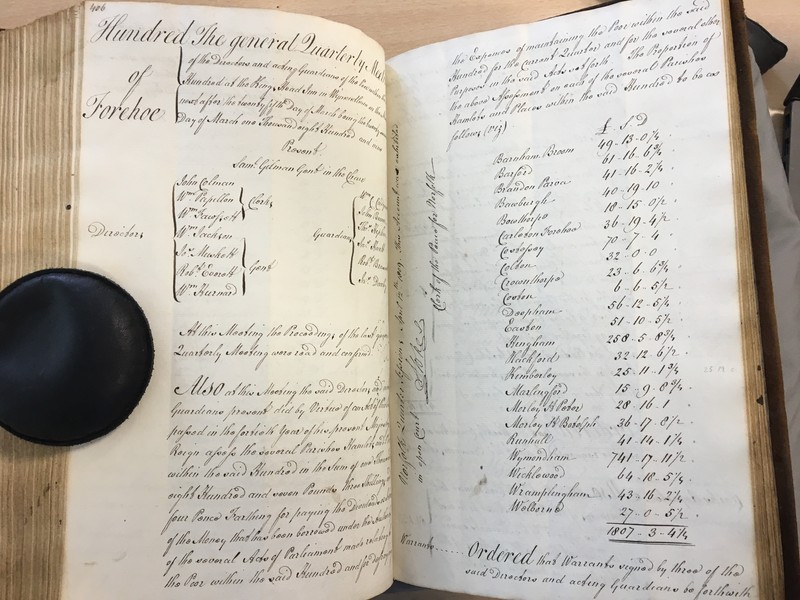 406
Hundred
of
Forehoe
The general Quarterly
of the Directors and acting Guardians of the Poor within the
Hundred at the King's Head Inn in Wymondham on
next after the twenty fifth day of March being the twenty
day of March one Thousand eight Hundred and nine
Present
Saml. Gilman Gent in the Chair
Directors
John Colman
Wm. Papillon
Wm. Fawssett
Clerks
Wm. Jackson
Jas. Muskett
Robt. Everett
Wm. Hurnard
Gent
Guardians
At this Meeting the Proceedings of the last
Quarterly Meeting were read and confirmed
Also at this Meeting the said Directors and
Guardians present did by Virtue of an Act
passed in the fortieth Year of his present Majesty's
Reign assess the several Parishes Hamlets
within the said Hundred in the Sum of one Thousand
eight Hundred and seven Pounds three Shillings
four Pence Farthing for paying the
of the Money that has been borrowed under
of the several Acts of Parliament made
the Poor within the said Hundred and for defraying
in open Court
Clerk of the Peace for Norfolk
the Expences of maintaining the Poor within the said
Hundred for the current Quarter and for the several other
Purposes in the said Acts set forth. The Proportion of
the above Assessment on each of the several Parishes
Hamlets and Places within the said Hundred to be as
follows (viz)
£ S D
Barnham Broom 49-13-0¼
Barford 61-16-6¾
Brandon Parva 41-16-2¼
Bawburgh 40-19-10
Bowthorpe 18-15-0½
Carleton Forehoe 36-19-4½
Costessey 70-7-4
Colton 32-0-0
Crownthorpe 23-6-6¾
Coston 6-6-5½
Deopham 56-12-5¼
Easton 51-10-5½
Hingham 258-5-8¾
Hackford 32-12-6½
Kimberley 25-11-1¾
Marlingford 15-9-8¾
Morley St. Peter 28-16-1
Morley St. Botolph 36-17-8½
Runhall 41-14-1¼
Wymondham 741-17-11½
Wicklewood 64-18-5¼
Wramplingham 43-16-2¼
Welborne 27-0-5½
1807-3-4¼
Warrants
Ordered that Warrants signed by three of the
said Directors and acting Guardians be forthwith